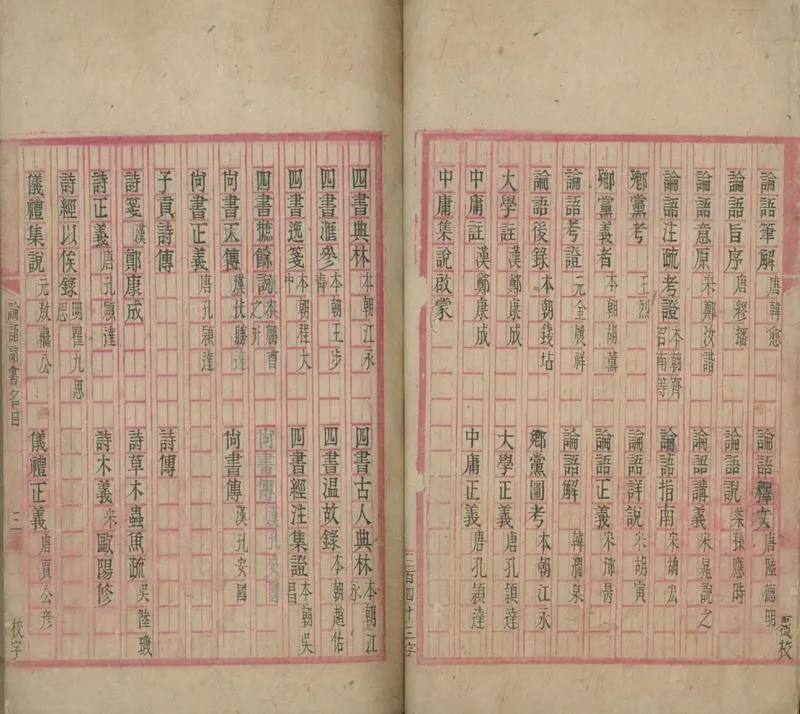 論語筆解 唐韓愈 論語釋文 唐陸德明
論語旨序 唐繆播 論語說 孫應時
論語意原 宋鄭汝諧 論語講義 宋晁說之
論語注疏考證 本朝齊召南等 論語指南 宋胡宏
鄉黨考 王烈 論語詳說 宋胡寅
鄉黨義考 本朝胡薰 論語正義 宋邢昺
論語考證 元金履祥 論語解 韓澗泉
論語後錄 本朝錢坫 鄉黨圖考 本朝江永
大學註 漢鄭康成 大學正義 唐孔穎達
中庸註 漢鄭康成 中庸正義 唐孔穎達
中庸集說啟蒙
二百四十三字
覆校
四書典林 本朝江永 四書古人典林 本朝江永
四書滙參 本朝王步青 四書溫故錄 本朝趙佑
四書逸箋 本朝程大中 四書經注集證 本朝吳昌
四書摭餘說 本朝曹之升 尚書傳 漢孔安國
尚書大傳 漢伏勝 尚書傳 漢孔安國
尚書正義 唐孔穎達
子貢詩傳 詩傳
詩箋 漢鄭康成 詩草木蟲魚疏 吳陸璣
詩正義 唐孔穎達 詩本義 宋歐陽修
詩經以俟錄 明瞿九思
儀禮集說 元敖繼公 儀禮正義 唐賈公彥
論語諸書名目 三
校字